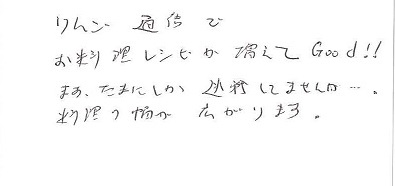 りんご通信で
お料理レシピが増えてGood!!
まあ、たまにしか していませんが…。
料理の幅が広がります。